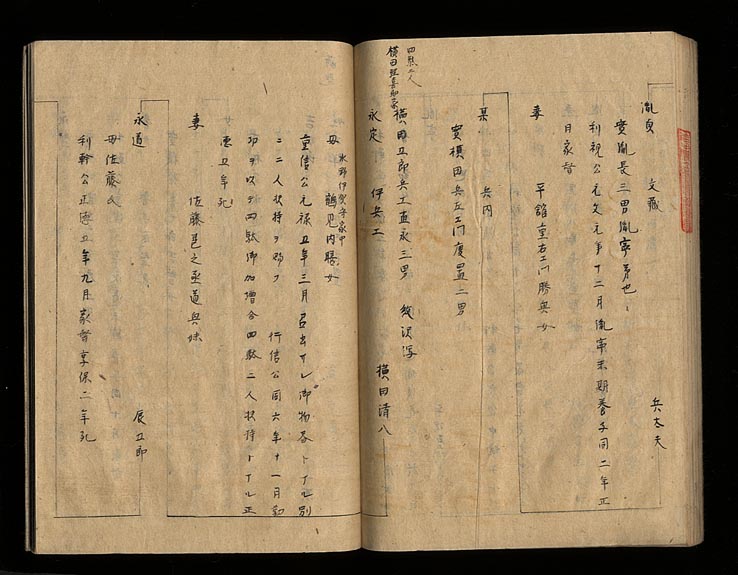 胤貞 文蔵 兵太夫
実胤長三男胤寧弟也
利視公元文元年十二月胤寧末期養子同二年正
月家督
妻 平舘重右エ門勝興女
某 兵内
実横田兵左エ門慶置二男
四駄二人
横田
横田五郎兵エ直永三男 横田清八
永定 伊兵エ
母 水野伊賀守家中 鶴見内膳女
重信公元禄五年三月召出サレ御物各トナル別
ニ二人扶持ヲ賜フ 行信公同六年十一月勤
功ヲ以テ四駄御加増合四駄二人扶持トナル正
徳五年死
妻 佐藤邑之丞道興妹
永道 辰五郎
母佐藤氏
利幹公正徳五年九月家督享保二年死